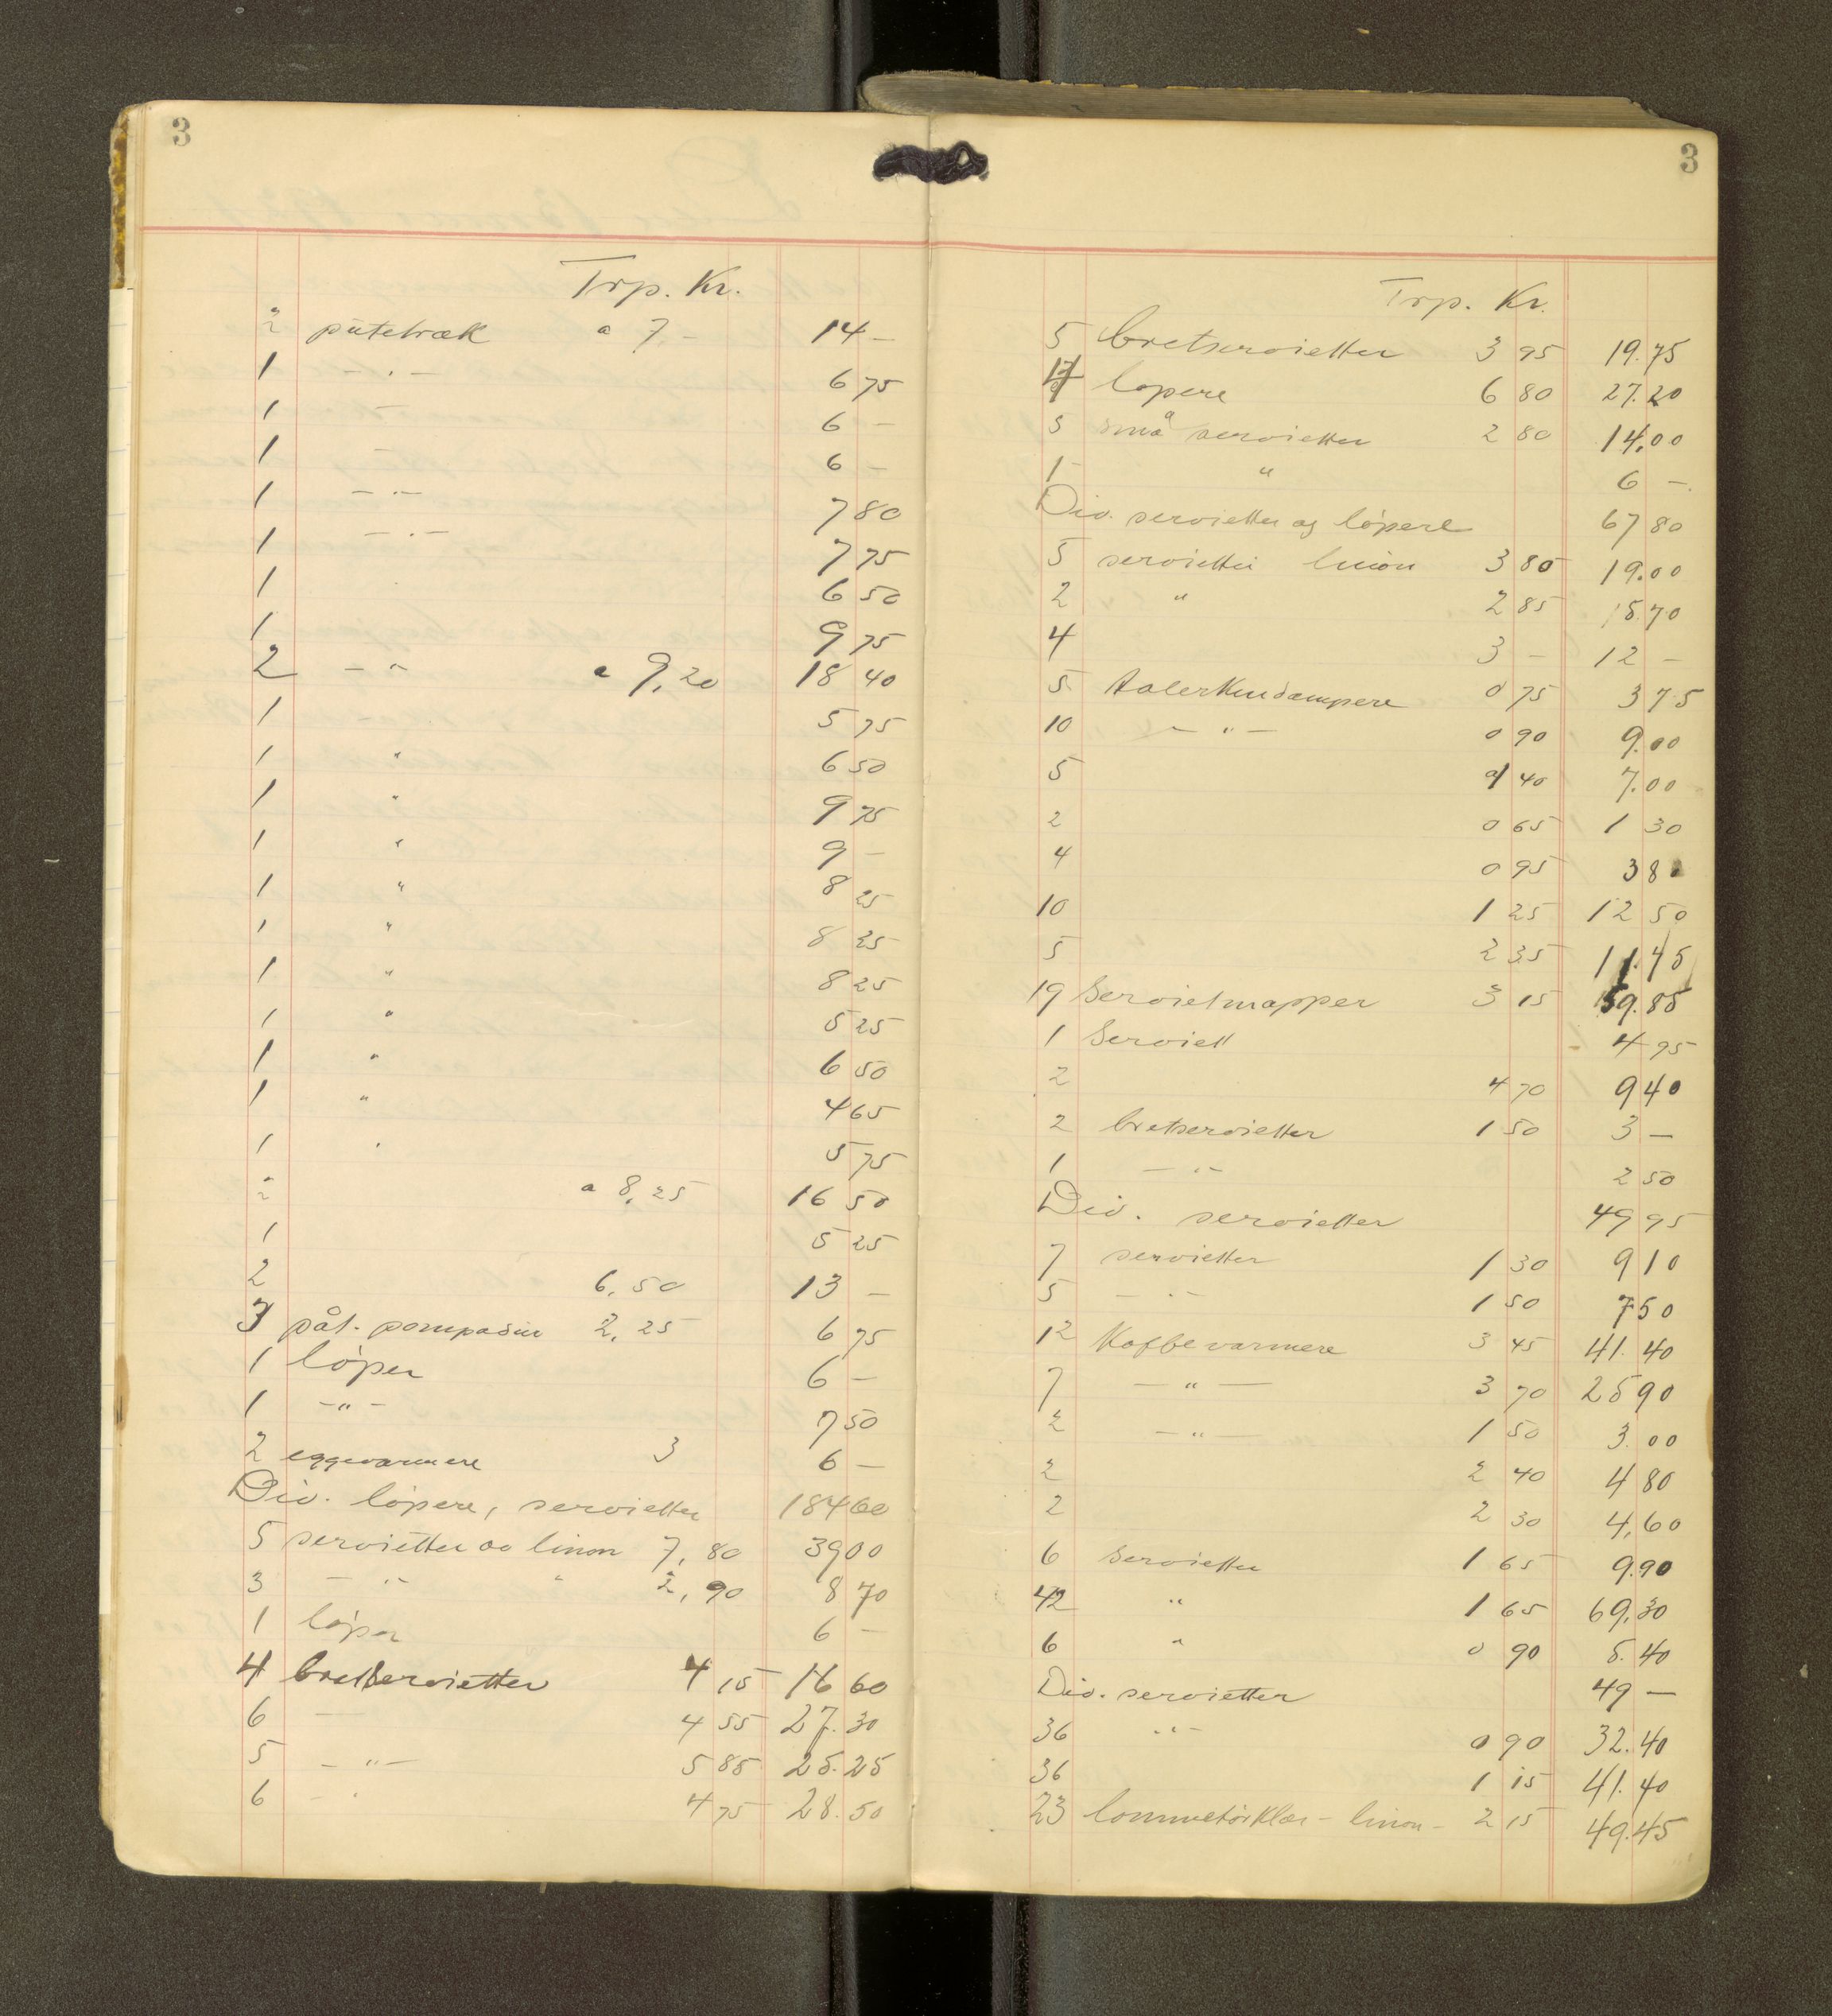 3
Trp. Kr.
2 putetræk a 7,- 14 -
1 - " - 6 75
1 - 6 -
1 - 6 -
1 - " - 7 80
1 - " - 7 75
1 6 50
1 9 75
2 - " a 9,20 18 40
1 5 75
1 " 6 50
1 " 9 75
1 " 9 -
1 " 8 25
1 " 8 25
1 " 8 25
1 " 5 25
1 " 6 50
1 " 4 65
1 " 5 75
2 a 8,25 16 50
1 5 25
2 6,50 13 -
3 påt. pompadur 2,25 6 75
1 löper 6 -
1 - " - 7 50
2 eggevarmere 3 6 -
Div. löpere, servietter 184 60
5 servietter av linon 7,80 39 00
3 - " - " 2,90 8 70
1 löper 6 -
4 bretservietter 4 15 16 60
6 - 4 55 27.30
5 - " - 5 85 25.25
6 - " 4 75 28.50
3
Trp. Kr.
5 bretservietter 3 95 19.75
4 lopere 6 80 27.20
5 små servietter 2 80 14,00
1 " 6 -
Div. servietter og löpere 67 80
5 servietter linon 3 80 19.00
2 " 2 85 15.70
4 3 - 12 -
5 talerkendempere 0 75 3 75
10 - " - 0 90 9.00
5 1 40 7.00
2 0 65 1 30
4 0 95 3 80
10 1 25 12 50
5 2 35 11.45
19 Servietmapper 3 15 59.85
1 Serviett 4 95
2 4 70 9 40
2 bretservietter 1 50 3 -
1 - " - 2 50
Div. servietter 49 95
7 servietter 1 30 9 10
5 - " - 1 50 7 50
12 Kaffevarmere 3 45 41.40
7 - " - 3 70 25 90
2 - " - 1 50 3.00
2 2 40 4 80
2 2 30 4,60
6 Servietter 1 65 9.90
42 " 1 65 69,30
6 " 0 90 5.40
Div. servietter 49 -
36 - " - 0 90 32.40
36 1 15 41.40
23 lommetörklær - linon - 2 15 49.45